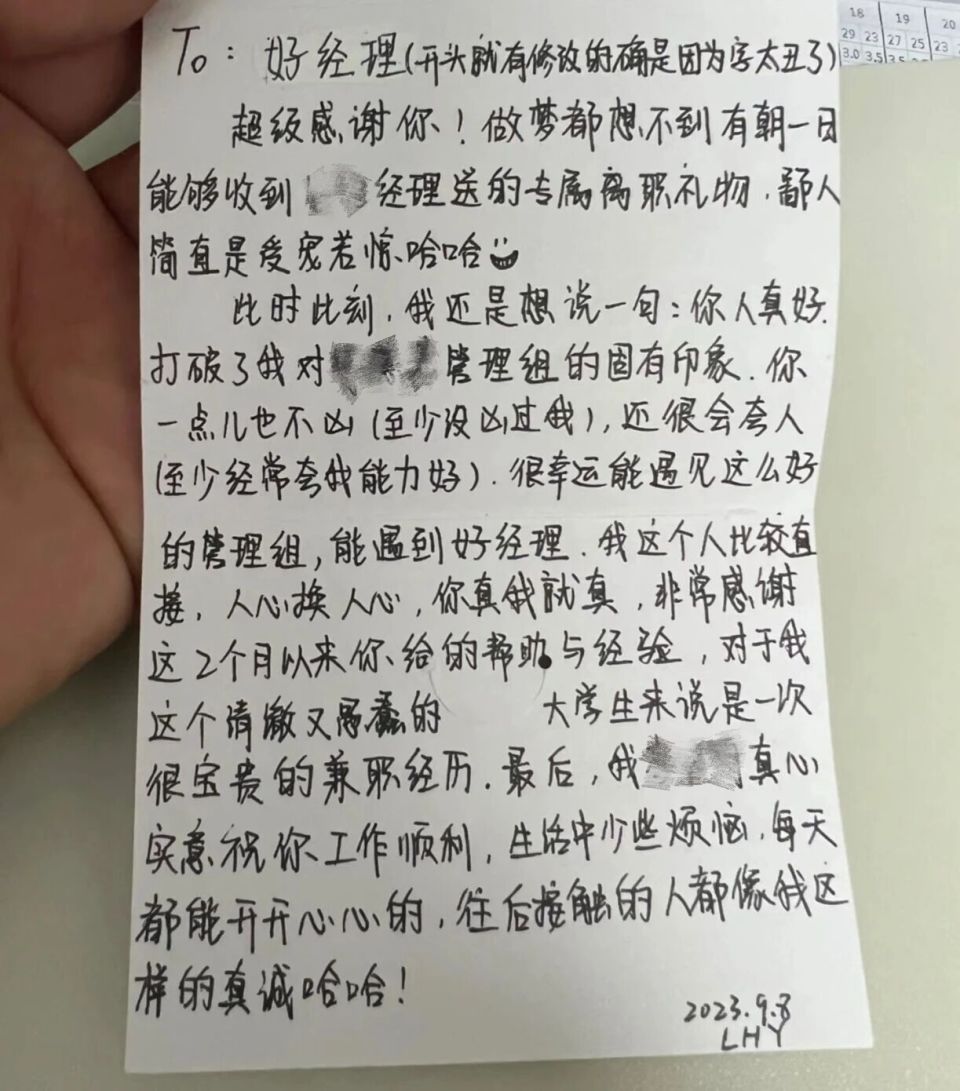 18 19 20
29 23 27 25 23
3.0 3.5
To: 好经理(开头就有修改的确是因为字太丑了)
超级感谢你!做梦都想不到有朝一日
能够收到 经理送的专属离职礼物.鄙人
简直是受宠若惊.哈哈
此时此刻,我还是想说一句:你人真好.
打破了我对 管理组的固有印象.你
一点儿也不凶(至少没凶过我),还很会夸人
(至少经常夸我能力好).很幸运能遇见这么好
的管理组,能遇到好经理.我这个人比较直
接,人心换人心,你真我就真,非常感谢
这2个月以来你给的帮助与经验,对于我
这个清澈又愚蠢的 大学生来说是一次
很宝贵的兼职经历.最后,我 真心
实意祝你工作顺利,生活中少些烦恼,每天
都能开开心心的,往后接触的人都像我这
样的真诚哈哈!
2023.9.8
LHY